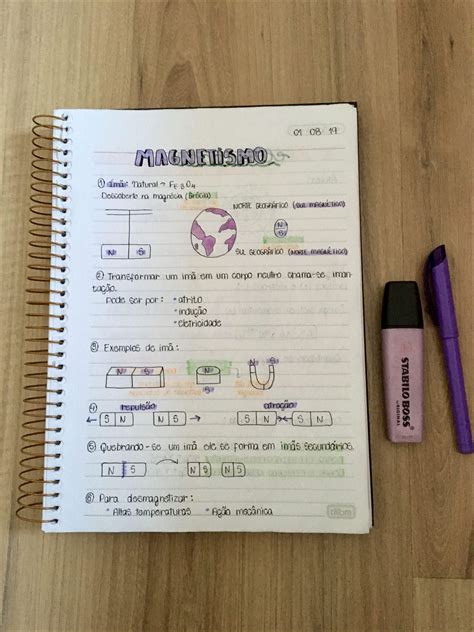 01 08 19
MAGNETISMO
① Ímãs: Natural → Fe3O4
Descoberto na magnésia (Grécia)
NORTE GEOGRÁFICO (SUL MAGNÉTICO)
N
S
N S
SUL GEOGRÁFICO (NORTE MAGNÉTICO)
② Transformar um ímã em um corpo neutro chama-se iman-
tação.
Pode ser por: • atrito
• indução
• eletricidade
③ Exemplos de imã:
N S
N
S
N S
④ repulsão atração
S N N S S N S N
⑤ Quebrando-se um imã ele se forma em imãs segundários.
N S N S N S
⑥ Para desmagnetizar:
• Altas temperaturas • Ação mecânica
tilibra
STABILO BOSS
ORIGINAL